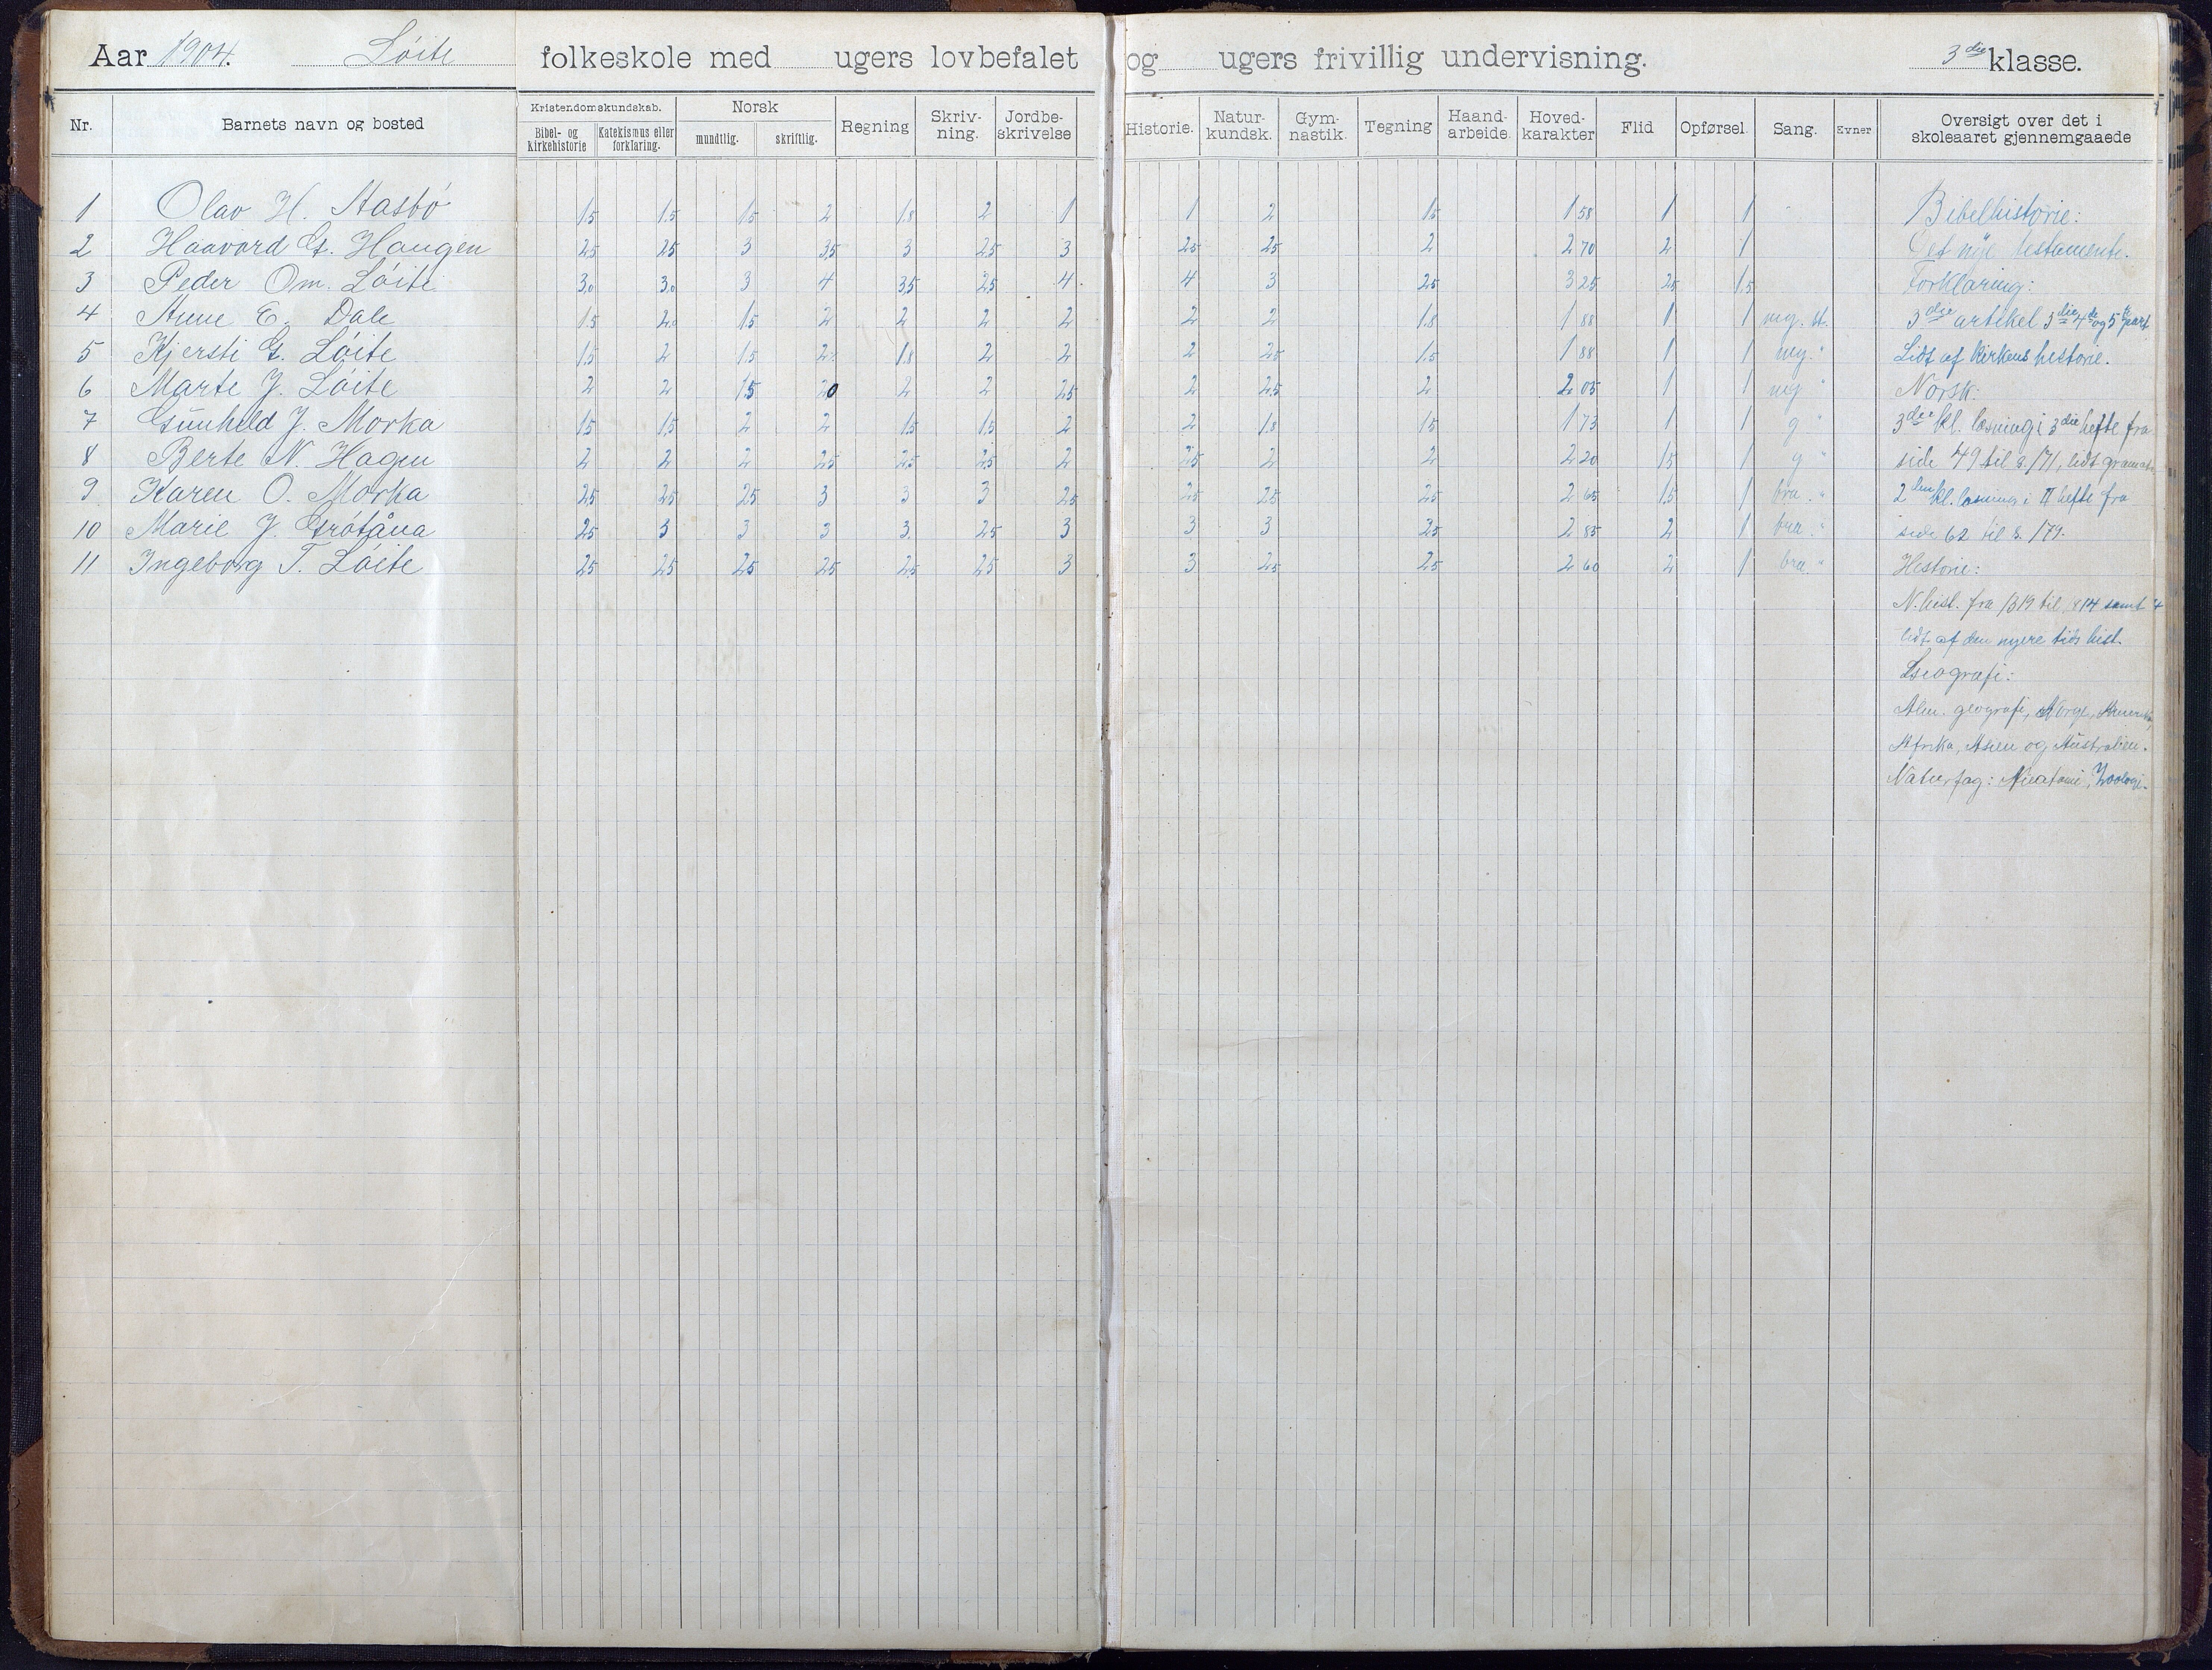 Aar 1904. Löite folkeskole med ugers lovbefalet og ugers frivillig undervisning. 3die klasse.
Nr. Barnets navn og bosted Kristendomskundskab. Bibel- og kirkehistorie Katekismus eller forklaring. Norsk mundtlig. skriftlig. Regning Skriv-ning. Jordbe-skrivelse Historie. Natur-kundsk. Gym-nastik. Tegning Haand-arbeide. Hoved-karakter Flid Opførsel. Sang. Evner Oversigt over det i skoleaaret gjennemgaaede
1 Olav H. Aasbö 1.5 1.5 1.5 2 1.8 2 1 1 2 1.5 1 58 1 1 Bibelhistorie:
2 Haavord G. Haugen 2.5 2.5 3 3.5 3 2.5 3 2.5 2.5 2 2 70 2 1 Det nye testamente.
3 Peder Om. Löite 3.0 3.0 3 4 3.5 2.5 4 4 3 2.5 3 25 2.5 1.5 Forklaring:
4 Anne E. Dale 1.5 2.0 1.5 2 2 2 2 2 2 1.8 1 88 1 1 mg. st. 3die artikel 3die 4de og 5te part
5 Kjersti G. Löite 1.5 2 1.5 2 1.8 2 2 2 2.5 1.5 1 88 1 1 mg. " Lidt af kirkens historie.
6 Marte J. Löite 2 2 1.5 2.0 2 2 2.5 2 2.5 2 2 05 1 1 mg " Norsk:
7 Gunhild J. Morka 1.5 1.5 2 2 1.5 1.5 2 2 1.8 1.5 1 73 1 1 g " 3die kl. læsning i 3die hefte fra
8 Berte N. Hagen 2 2 2 2.5 2.5 2.5 2 2.5 2 2 2 20 1.5 1 g " side 49 til s. 171, lidt gramat
9 Karen O. Morka 2.5 2.5 2.5 3 3 3 2.5 2.5 2.5 2.5 2 65 1.5 1 bra. " 2den kl. læsning i II hefte fra
10 Marie J. Grötåna 2.5 3 3 3 3. 2.5 3 3 3 2.5 2 85 2 1 bra. " side 62 til s. 179.
11 Ingeborg T. Löite 2.5 2.5 2.5 2.5 2.5 2.5 3 3 2.5 2.5 2 60 2 1 bra. " Historie:
N. hist. fra 1319 til 1814 samt
lidt af den nyere tids hist.
Geografi:
Alm. geografi, Norge, Amerika,
Afrika, Asien og Australien.
Naturfag: Anatomi, Zoologi.